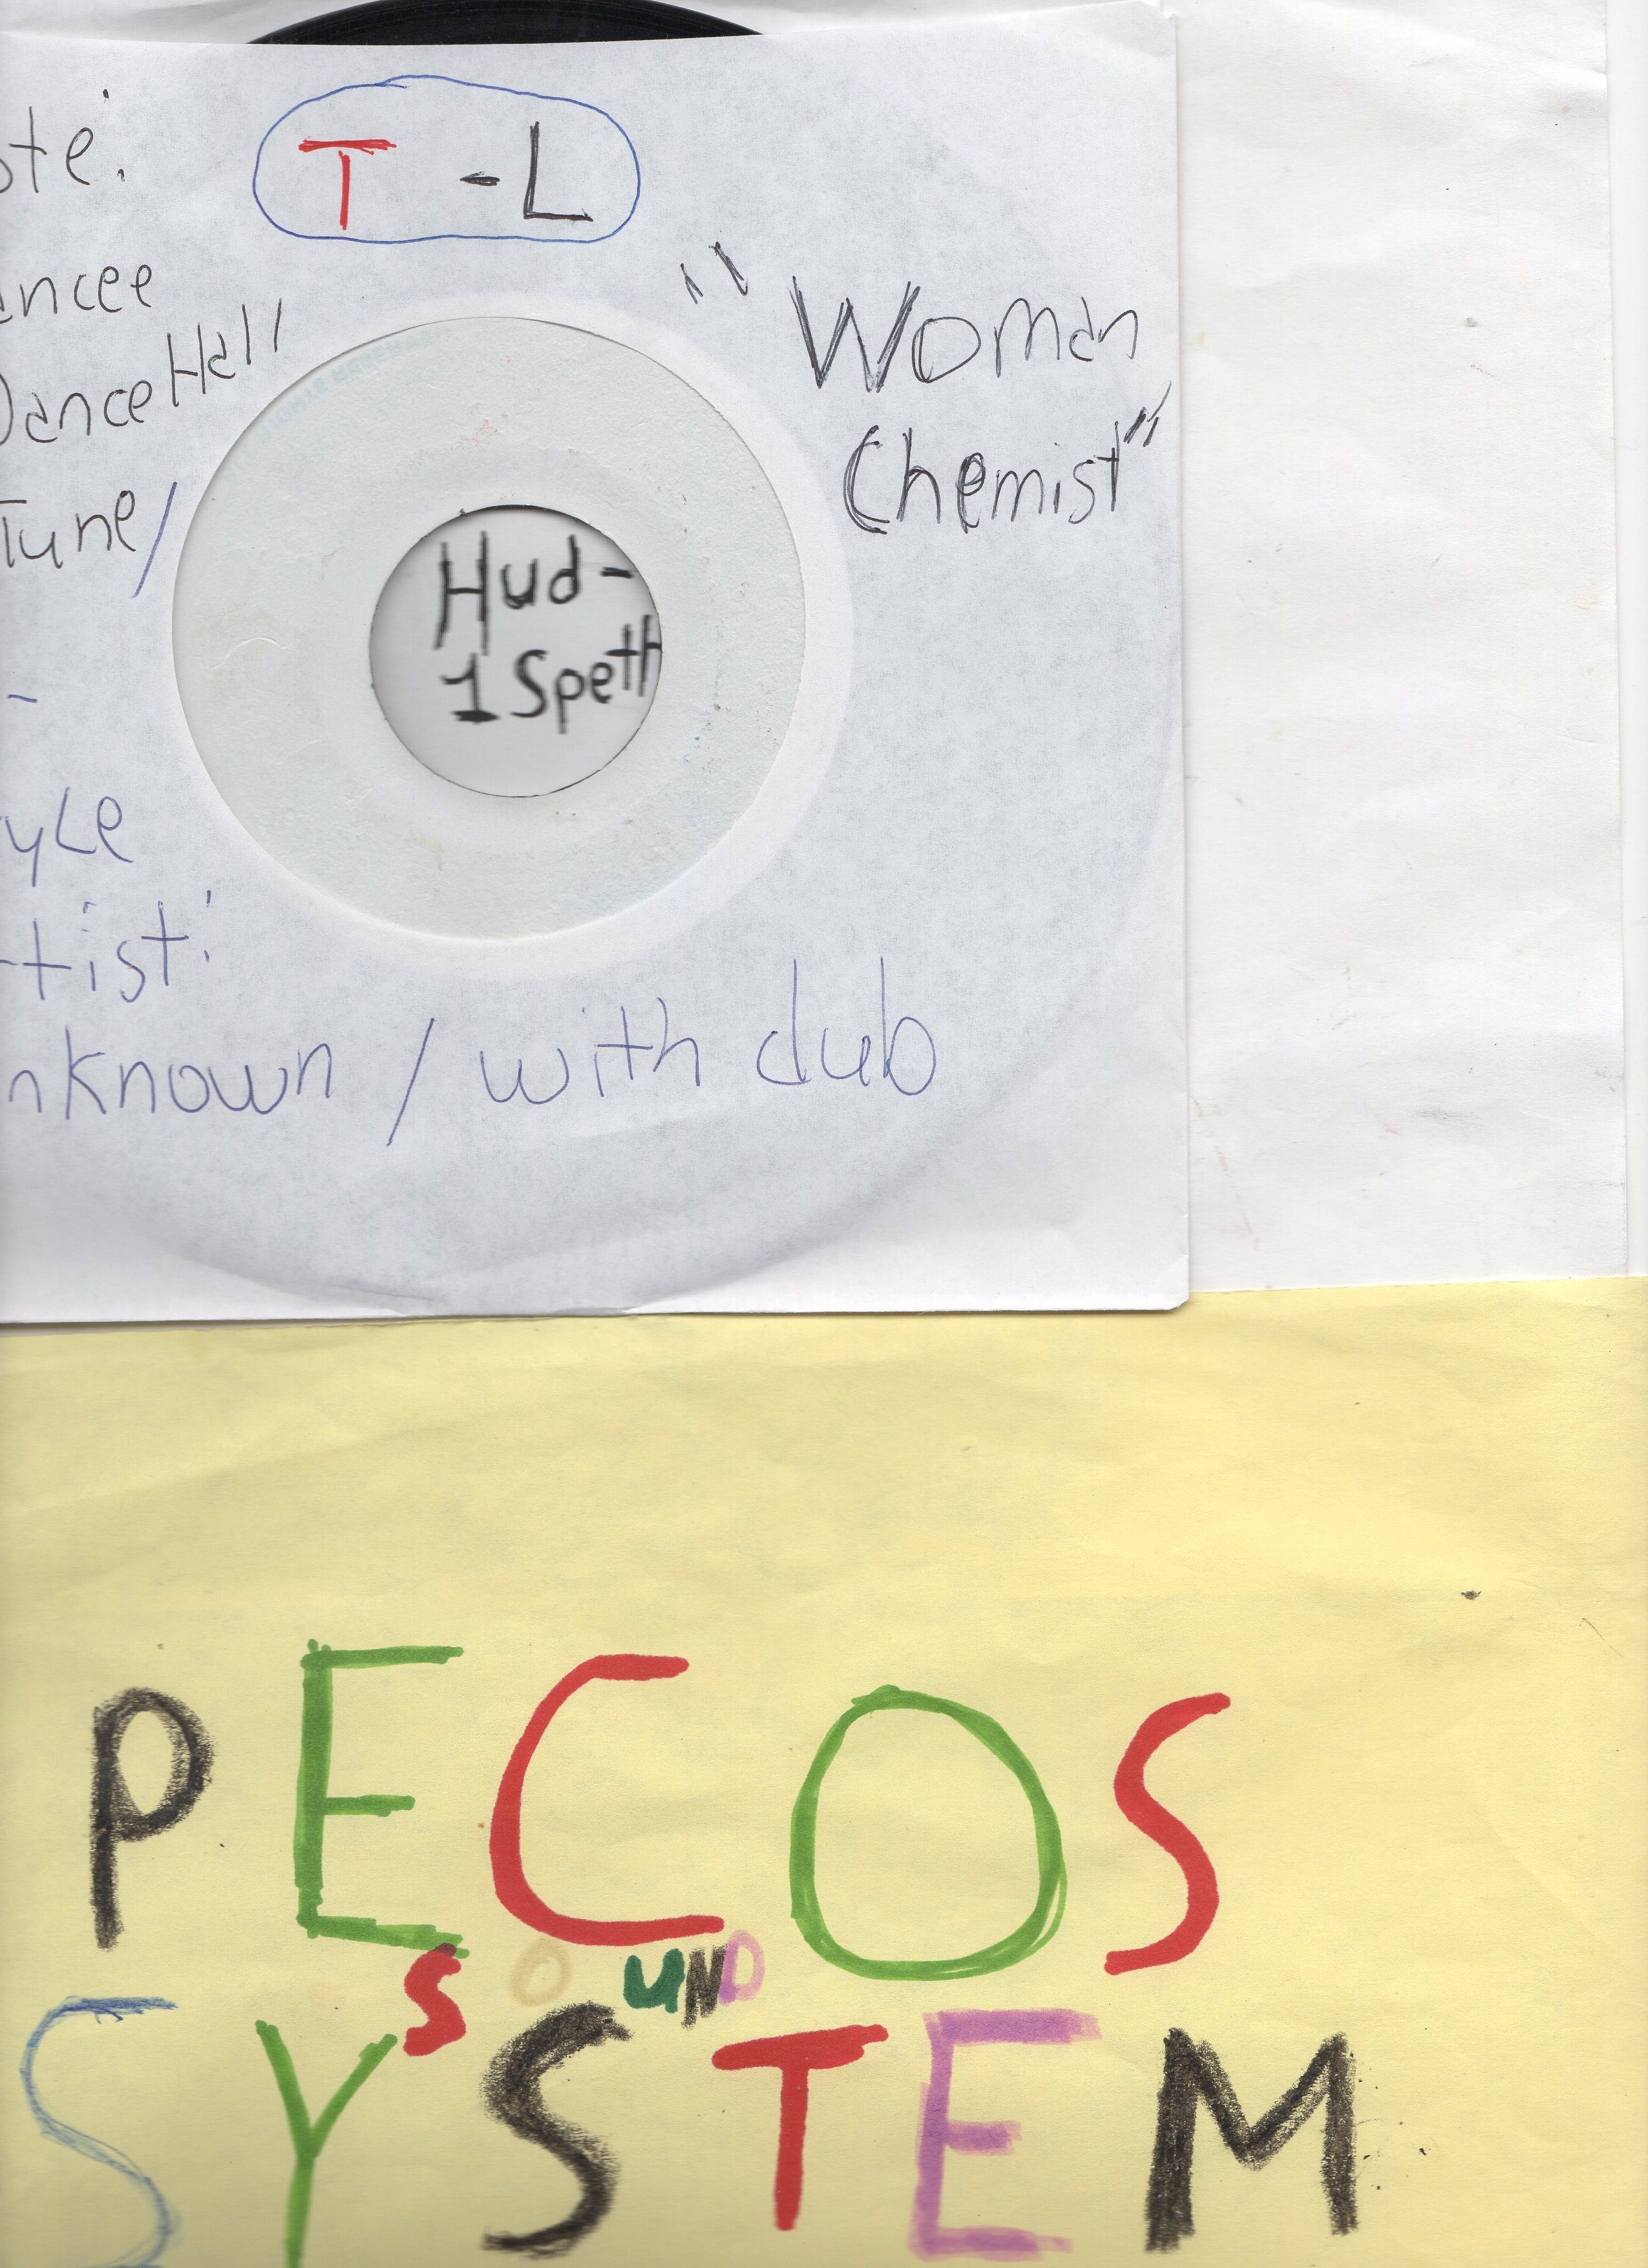 ote:
T - L
ancee
DanceHall
Tune/
"Woman
Chemist"
Hud-
1 Speth
-
yLe
tist:
nknown / with dub
PECOS
SOUND
SYSTEM